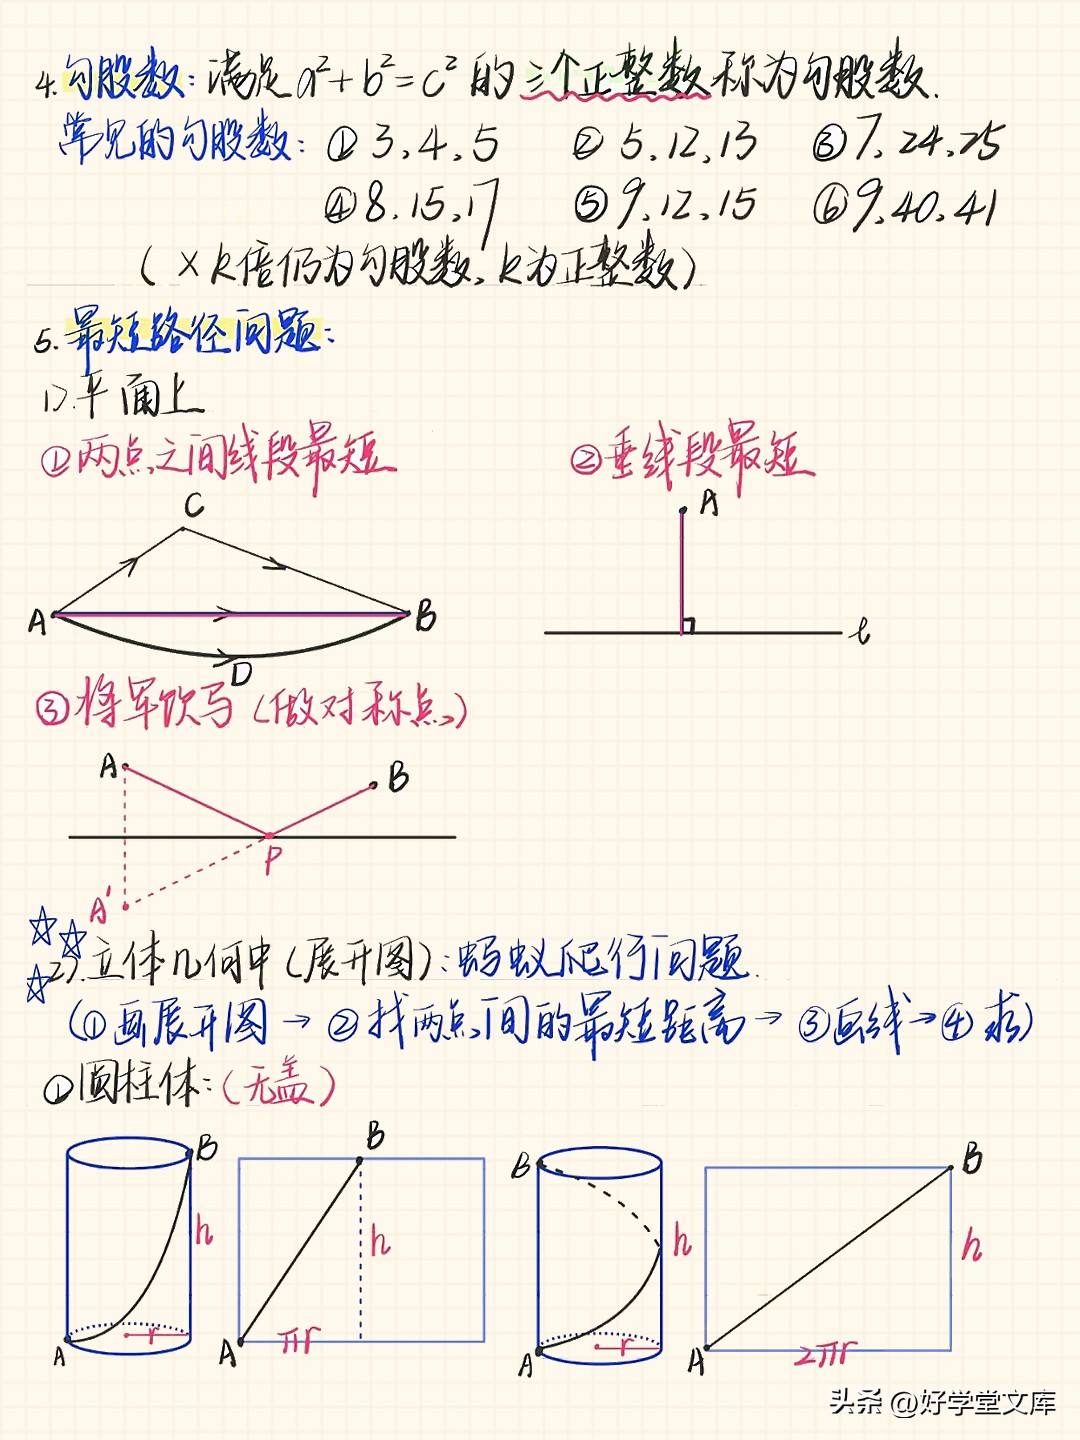 4.勾股数:满足a²+b²=c²的三个正整数称为勾股数.
常见的勾股数:①3,4,5 ②5,12,13 ③7,24,25
④8,15,17 ⑤9,12,15 ⑥9,40,41
(×k倍仍为勾股数,k为正整数)
5.最短路径问题:
1).平面上
①两点之间线段最短 ②垂线段最短
C A
A B
l
D
③将军饮马(做对称点)
A B
P
A'
2).立体几何中(展开图):蚂蚁爬行问题.
(①画展开图→②找两点间的最短距离→③画线→④求)
①圆柱体:(无盖)
B B B B
h h h h
r r
A A πr A A 2πr
头条@好学堂文库